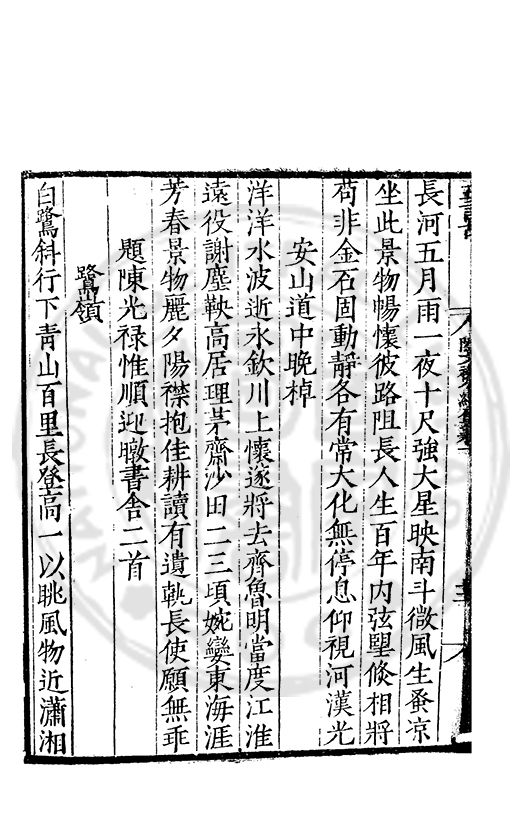 長河五月雨一夜十尺強大星映南斗微風生蚤凉
坐此景物暢懷彼路阻長人生百年内弦朢倐相將
苟非金石固動靜各有常大化無停息仰視河漢光
安山道中晚棹
洋洋水波逝永欽川上懷遂將去齊魯明當度江淮
遠役謝塵鞅高居理茅齋沙田二三頃婉孌東海涯
芳春景物麗夕陽襟抱佳耕讀有遺軌長使願無乖
題陳光禄惟順迎暾書舍二首
鷺嶺
白鷺斜行下青山百里長登高一以眺風物近瀟湘